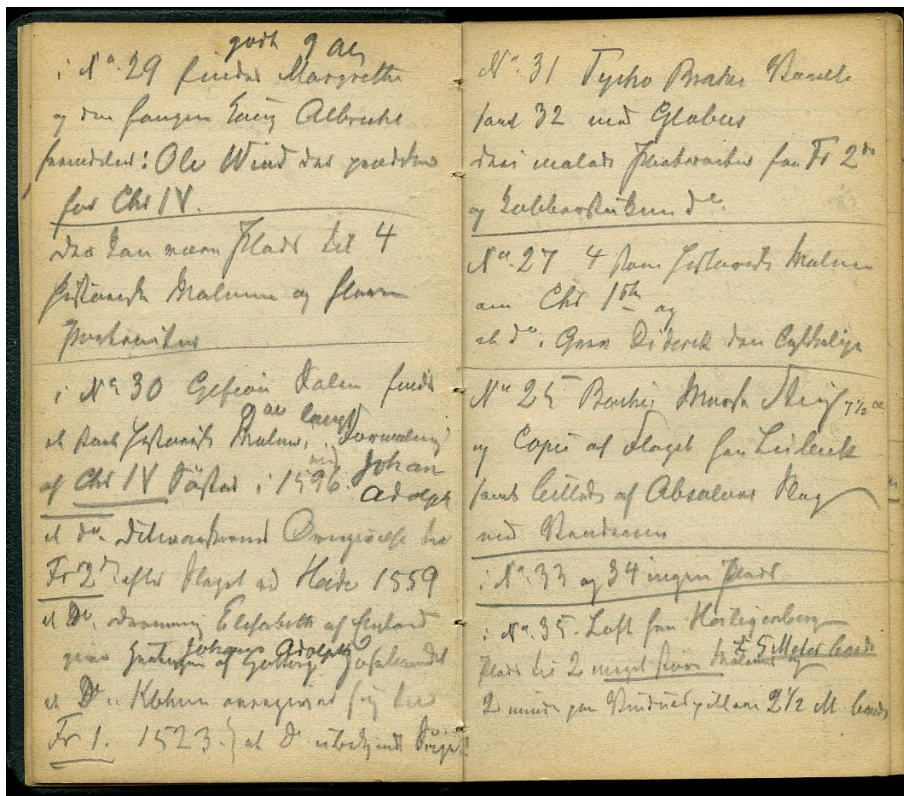 godt 9 al
i No. 29 findes Margrethe
og den fangne Kong Albrecht
fremstillet! Ole Wind der prædiker
for Chr IV.
Der kan være Plads til 4
historiske Malerier og flere
Portraiter
i No. 30 Gefion Salen findes
et stort historisk Maleri, Formæling
9 al langt
af Chr IV Søster i 1596. med Johan
Adolph
et do. Ditmarskerne Overgivelse til
Fr 2d efter Slaget ved Heide 1559
et Do. Dronning Elisabeth af England
giver Hertugen af Gottorp Hosebaandet
Johans Adolph
et Do. Kbhvn overgiver sig til
Fr 1. 1523. et Do ubekjendt
No. 31 Tycho Brahes
samt 32 med Globus
desl malede Portraiter fra Fr 2den
og Kobberstikkene do.
No. 27 4 store historiske Malerier
om Chr 1ste og
et do. Grev Diderik den Lykkelige
No 25 7 1/2 al
og Copie af Slaget fra Lübeck
samt Billede af Absalons Slag
ved Venderne
i No. 33 og 34 ingen Plads
i No. 35. Loft fra Heiligenberg
Plads til 2 meget store Malerier og
5 Meter brede
2 mindre paa Vinduespillerne 2 1/2 M brede